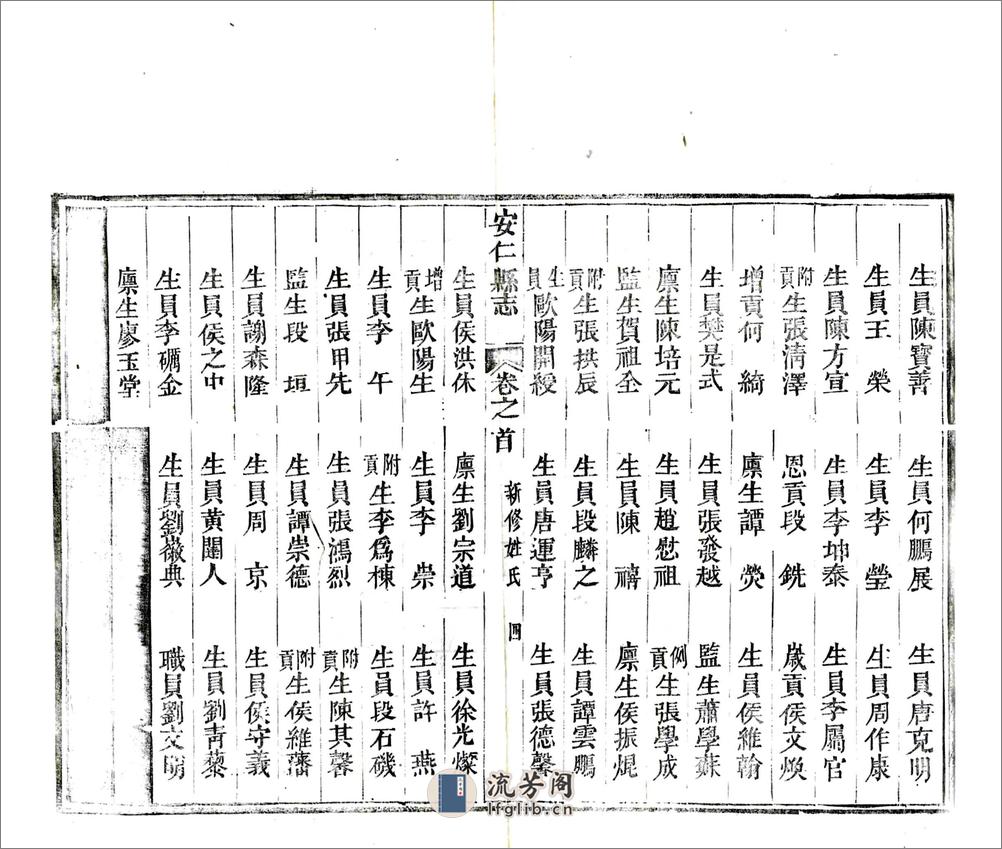 生員陳寶善　生員何鵬展　生員唐克明
生員王　榮　生員李　瑩　生員周作康
生員陳方宣　生員李坤泰　生員李屬官
附貢生張清澤　恩貢段　銑　歲貢侯文煥
增貢何　綺　廪生譚　熒　生員侯維翰
生員樊是式　生員張發越　監生蕭學蘇
廪生陳培元　生員趙慰祖　例貢生張學成
監生賀祖全　生員陳　禧　廪生侯振焜
附貢生張拱辰　生員段麟之　生員譚雲鵬
生員歐陽開綬　生員唐運亨　生員張德馨
安仁縣志　卷之首　新修姓氏　四
生員侯洪休　廪生劉宗道　生員徐光燦
增貢生歐陽生　生員李　崇　生員許　燕
生員李　午　附貢生李爲棟　生員段石磯
生員張甲先　生員張鴻烈　附貢生陳其馨
監生段　垣　生員譚崇德　附貢生侯維藩
生員謝森隆　生員周　京　生員侯守義
生員侯之中　生員黃闈人　生員劉青藜
生員李礪金　生員劉徽典　職員劉文
廪生廖玉堂
流芳阁
lfglib.cn